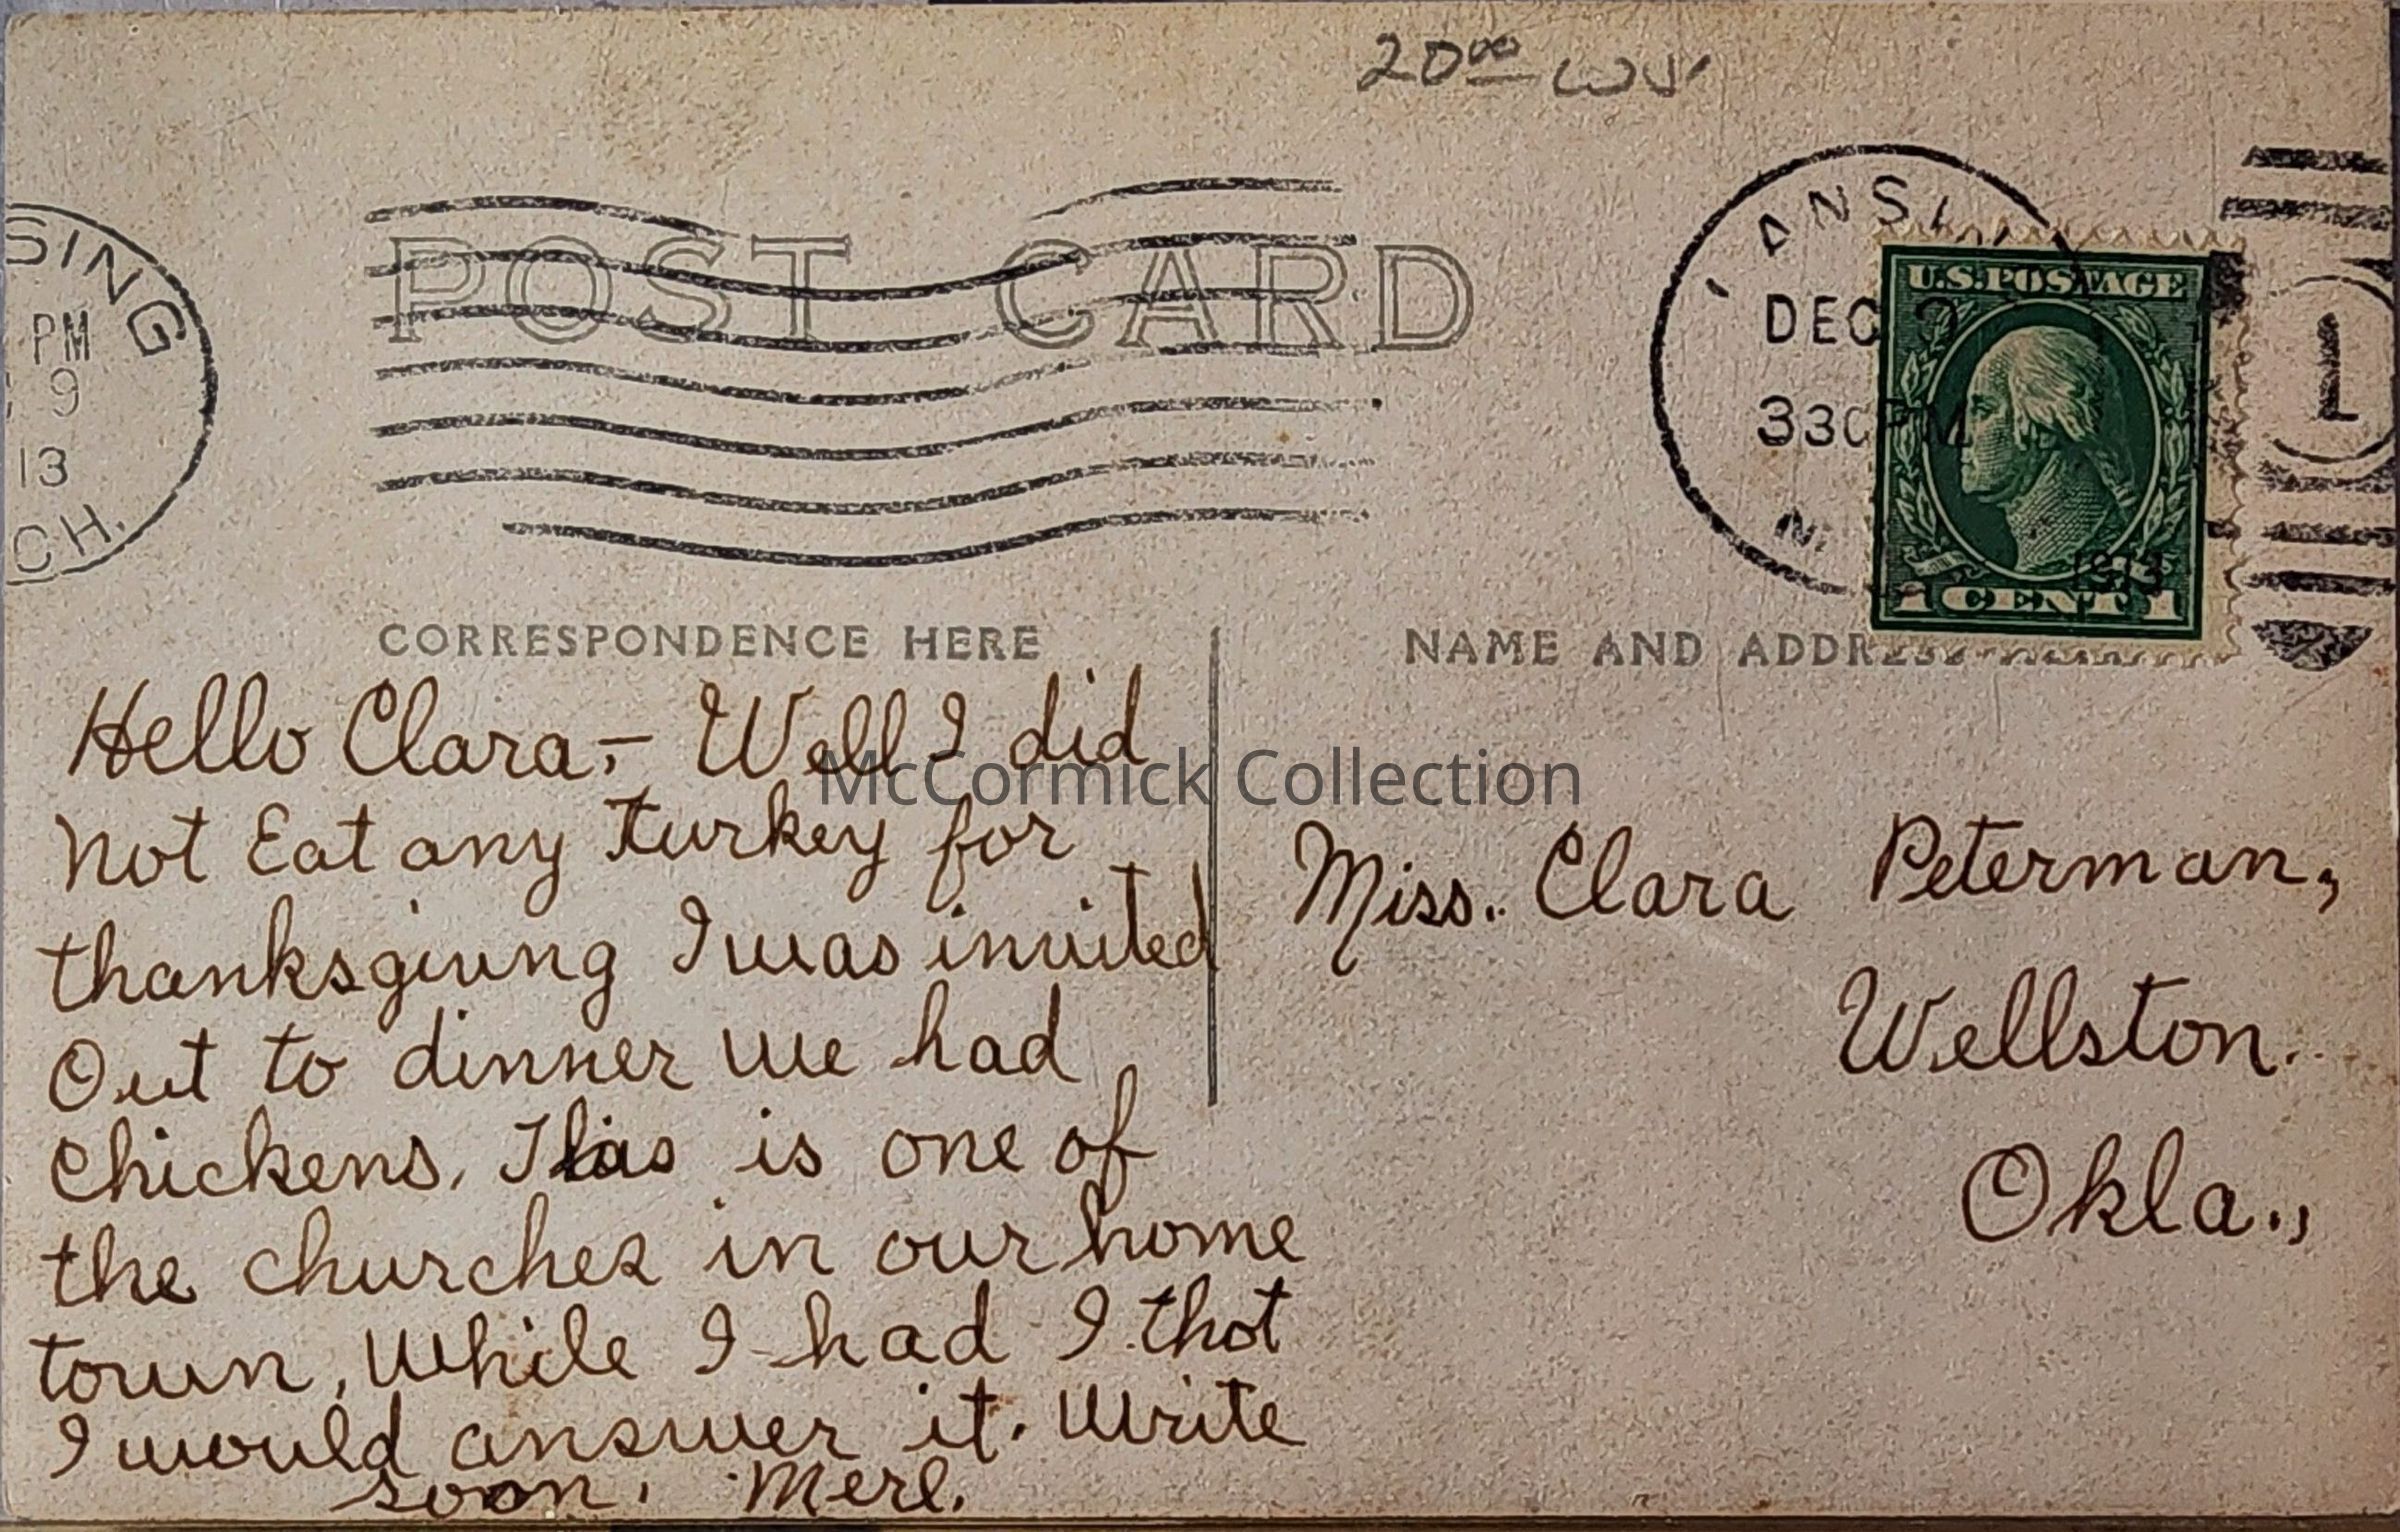 20⁰⁰
POST CARD
SING
PM
9
13
CH.
ANSI
DEC
330PM
1913
1
U.S. POSTAGE
1 CENT 1
CORRESPONDENCE HERE
NAME AND ADDRESS
Hello Clara,- Well I did
Not Eat any turkey for
thanksgiving I was invited
Out to dinner we had
Chickens, This is one of
the churches in our home
town, While I had I thot
I would answer it. Write
soon. Merl.
Miss. Clara Peterman,
Wellston.
Okla.,
McCormick Collection